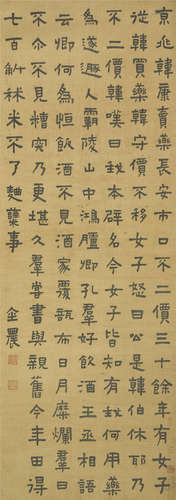 京兆韓康賣藥長安市口不二價三十餘年有女子
從韓買藥韓守價不移女子怒曰公是韓伯休耶乃
不二價韓嘆曰我本辟名今女子皆知有我何用藥
為遂遯入霸陵山中鴻臚卿孔羣好飲酒王丞相語
云卿何為恒飲酒不見酒家覆瓿布日月糜爛羣曰
不尒不見糟肉乃更堪久羣嘗書與親舊今年田得
七百斛秫米不了麴蘖事
金農